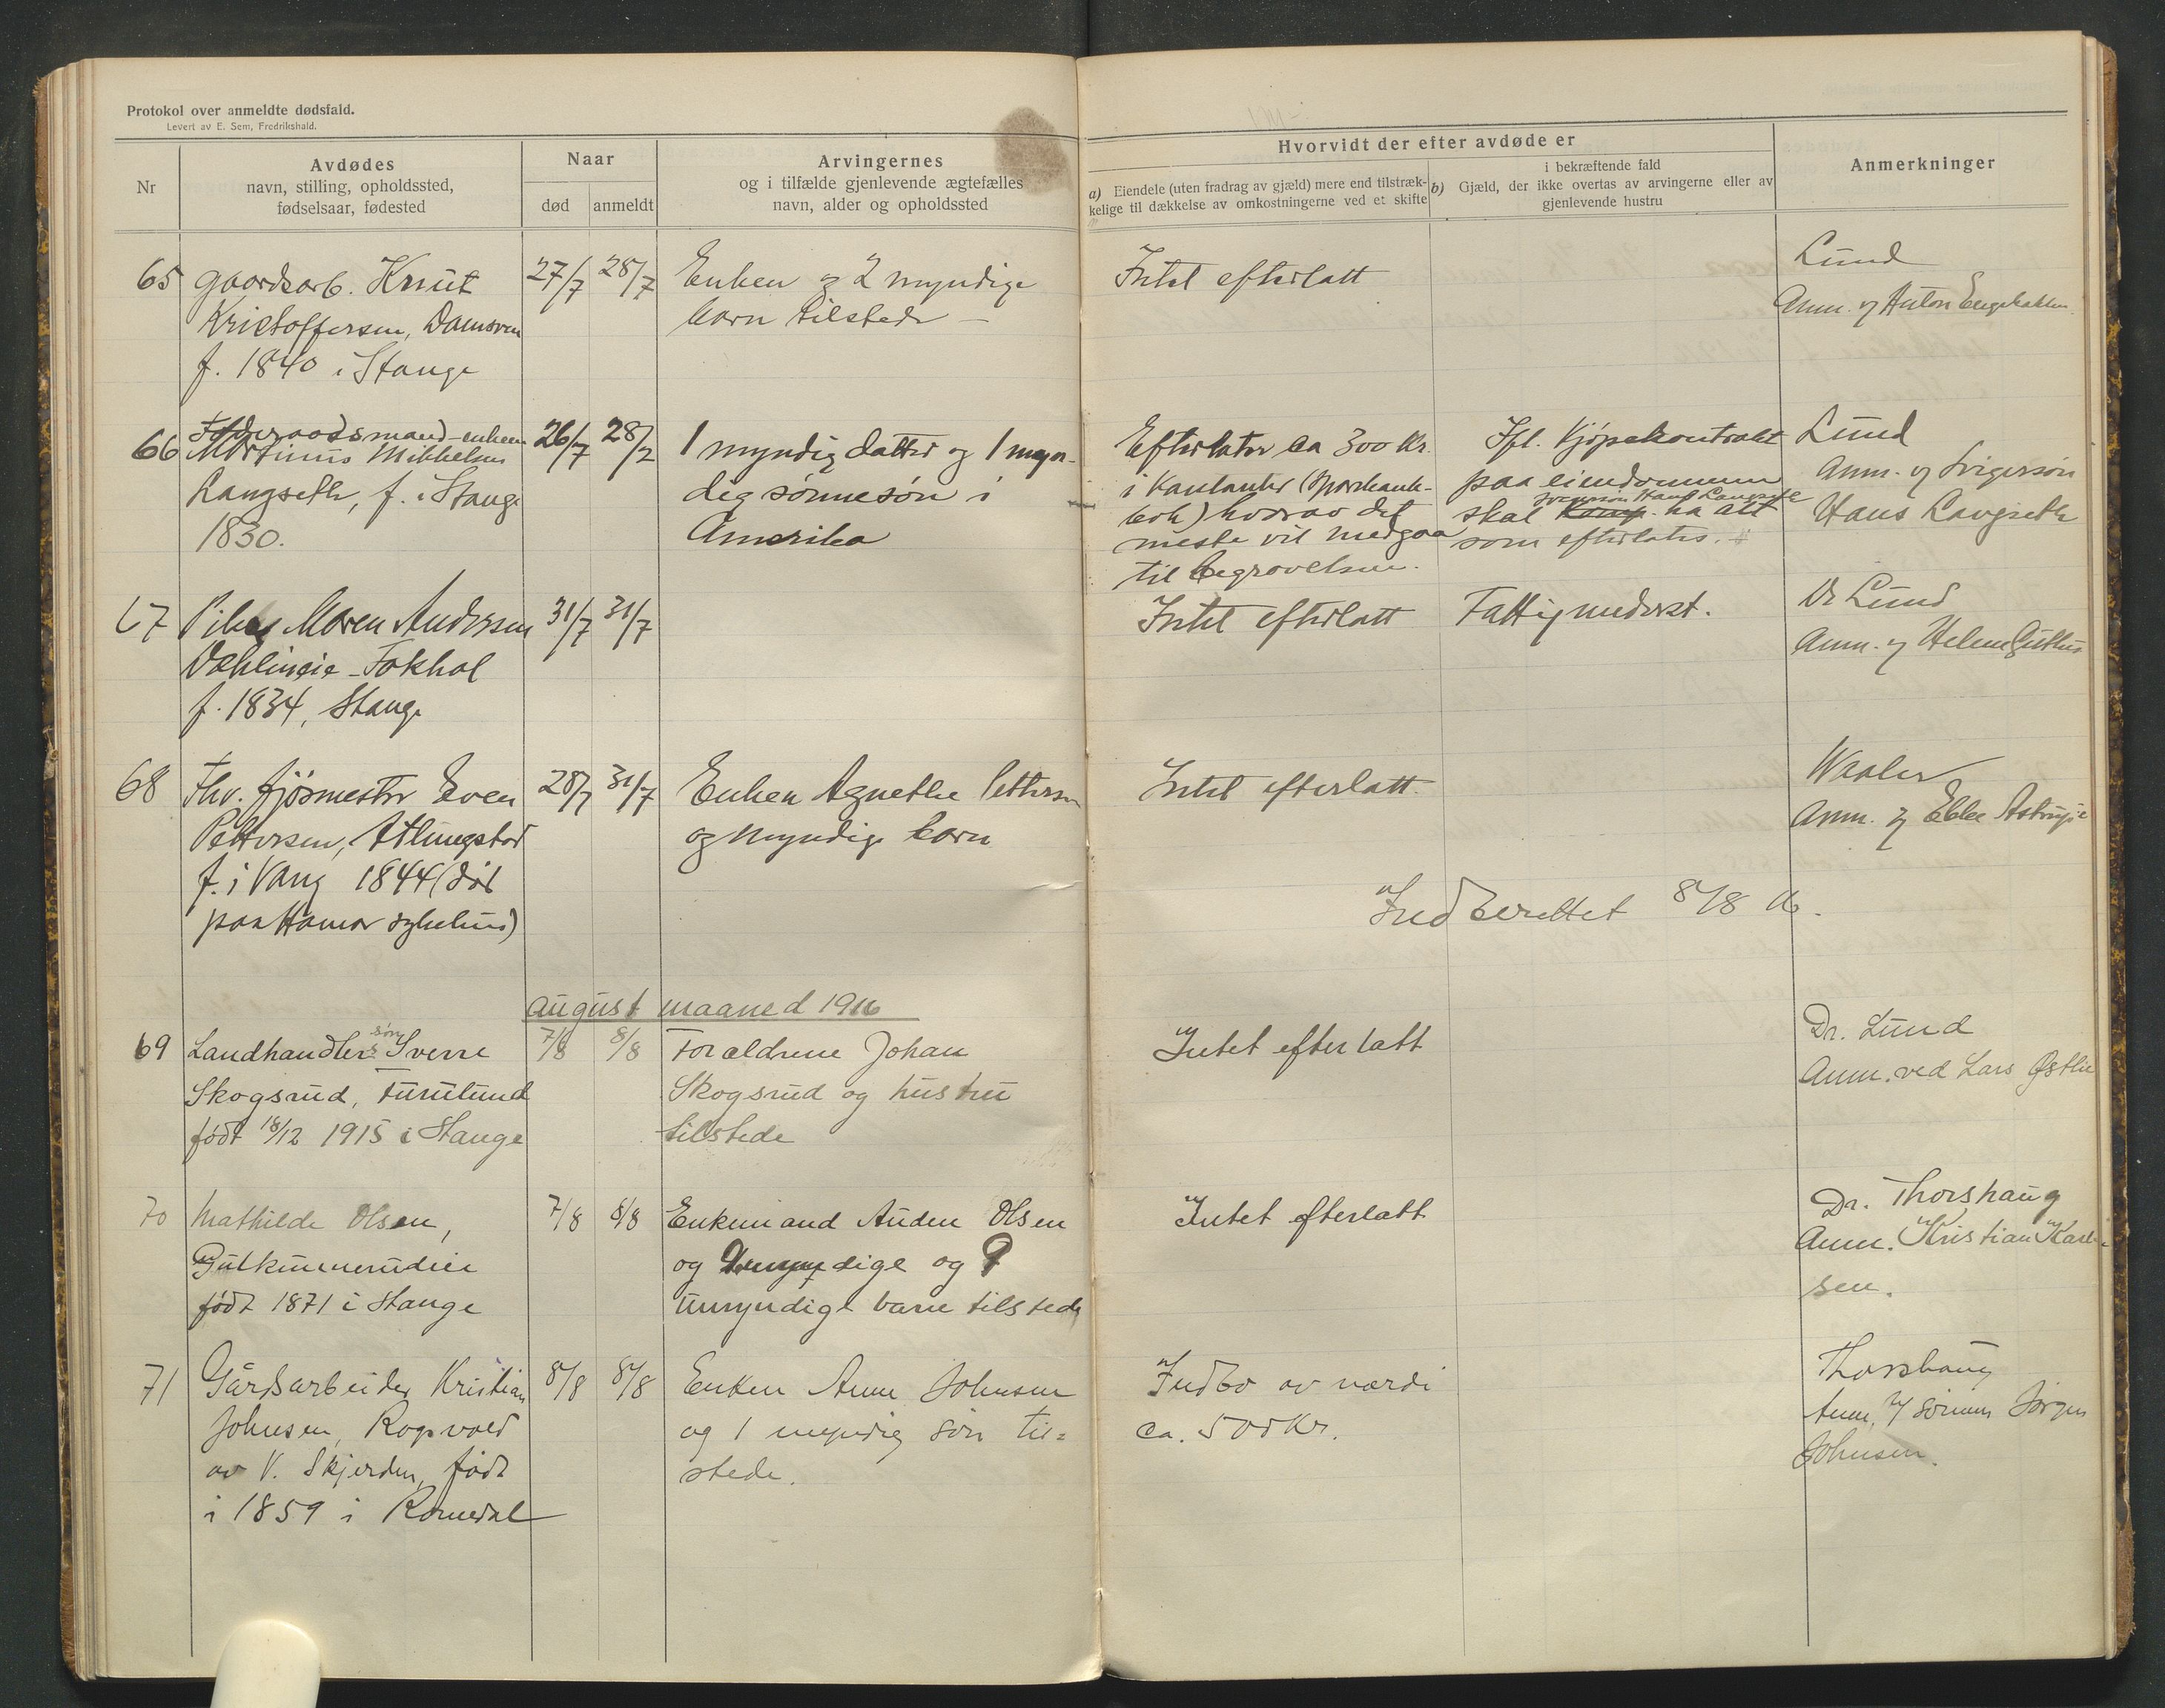 Protokol over anmeldte dødsfald.
Levert av E. Sem, Fredrikshald.
Nr
Avdødes
navn, stilling, opholdssted,
fødselsaar, fødested
Naar
død
anmeldt
Arvingernes
og i tilfælde gjenlevende ægtefælles
navn, alder og opholdssted
Hvorvidt der efter avdøde er
a) Eiendele (uten fradrag av gjæld) mere end tilstræk-
kelige til dækkelse av omkostningerne ved et skifte
i bekræftende fald
b) Gjæld, der ikke overtas av arvingerne eller av
gjenlevende hustru
Anmerkninger
65
gaardsarb. Knut
Kristoffersen,
f. 1840 i Stange
27/7
28/7
Enken og 2 myndige
børn tilstede
Intet efterlatt
Lund
Anm. v/ Anton
66
Føderaadsmand-enkem
Martinus Mikkelsen
Langseth, f. i Stange
1830.
26/7
28/7
1 myndig datter og 1 myn-
dig sønnesøn i
Amerika
Efterlater ca 300 Kr.
i Kontanter (Sparebank-
bok) hvorav det
meste vil medgaa
til begravelsen.
Ifl. Kjøpekontrakt
paa eiendommen
svigersøn Hans Langseth
skal ha alt
som efterlates.
Lund
Anm. v/ Svigersøn
Hans Langseth
67
Pike Maren Andersen
Dæhlineie - Fokhol
f. 1834, Stange
31/7
31/7
Intet efterlatt
Fattigunderst.
Dr Lund
Anm. v/ Helene
68
Fhv. fjøsmester Even
Pettersen, Atlungstad
f. i Vang 1844 (død
paa Hamar sykehus)
28/7
31/7
Enken Agnethe Pettersen
og myndige børn
Intet efterlatt.
Waaler
Anm. v/ Ebbe Astrup
Indberettet 8/8 16.
August maaned 1916
69
Landhandlers søn Sverre
Skogsrud, Furulund
født 18/12 1915 i Stange
7/8
8/8
Forældrene Johan
Skogsrud og hustru
tilstede
Intet efterlatt
Dr. Lund
Anm. ved Lars Østlie
70
Mathilde Olsen,
født 1871 i Stange
7/8
8/8
Enkemand Auden Olsen
og og 9
umyndige barn tilstede
Intet efterlatt
Dr. Thorshaug
Anm. Kristian Karl-
sen.
71
Gårdsarbeider Kristian
Johnsen, Rognvold
av V. Skjerden, født
i 1859 i Romedal
8/8
8/8
Enken Anne Johnsen
og 1 myndig søn til=
stede.
Indbo av værdi
ca. 500 Kr.
Thorshaug
Anm. v/ sønnen Jørgen
Johnsen.